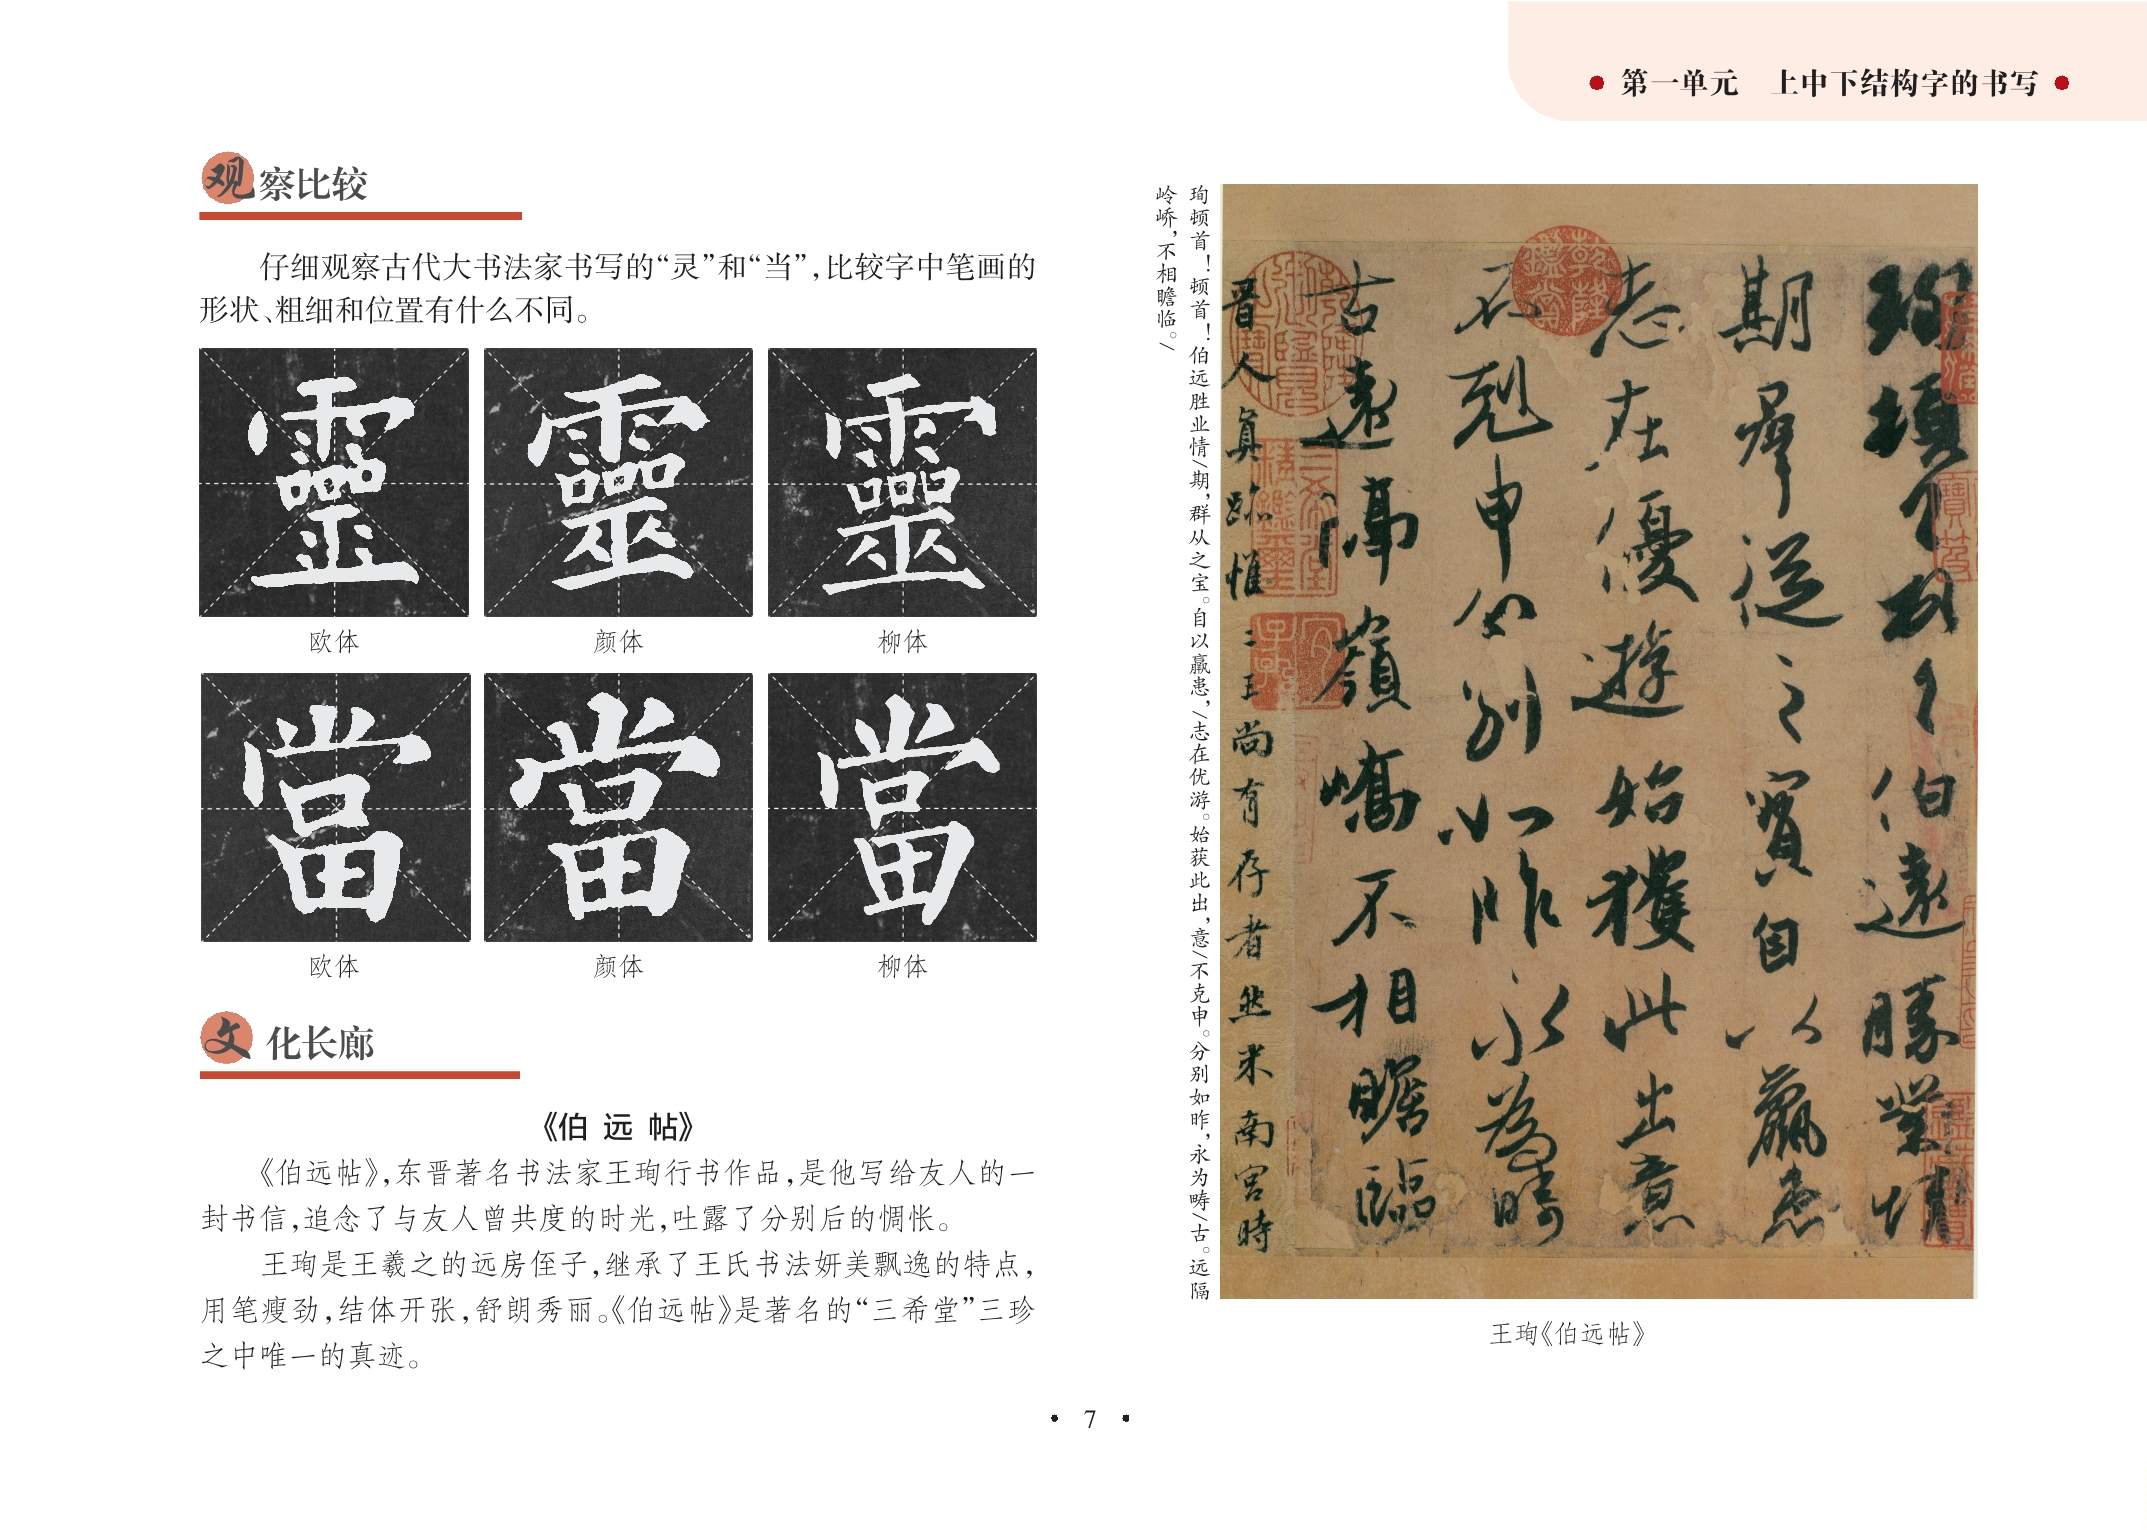 第一单元 上中下结构字的书写
观察比较
仔细观察古代大书法家书写的“灵”和“当”，比较字中笔画的
形状、粗细和位置有什么不同。
靈 靈 靈
欧体 颜体 柳体
當 當 當
欧体 颜体 柳体
文化长廊
《伯远帖》
《伯远帖》，东晋著名书法家王珣行书作品，是他写给友人的一
封书信，追念了与友人曾共度的时光，吐露了分别后的惆怅。
王珣是王羲之的远房侄子，继承了王氏书法妍美飘逸的特点，
用笔瘦劲，结体开张，舒朗秀丽。《伯远帖》是著名的“三希堂”三珍
之中唯一的真迹。
珣顿首！顿首！伯远胜业情/期，群从之宝。自以羸患，/志在优游。始获此出，意/不克申。分别如昨，永为畴/古。远隔
岭峤，不相瞻临。/
珣頓首頓首伯遠勝業情
期羣從之寳自以羸患
志在優遊始獲此出意
不剋申分別如昨永為疇
古遠隔嶺嶠不相瞻臨
晋人真跡惟二王尚有存者然米南宮時
王珣《伯远帖》
7